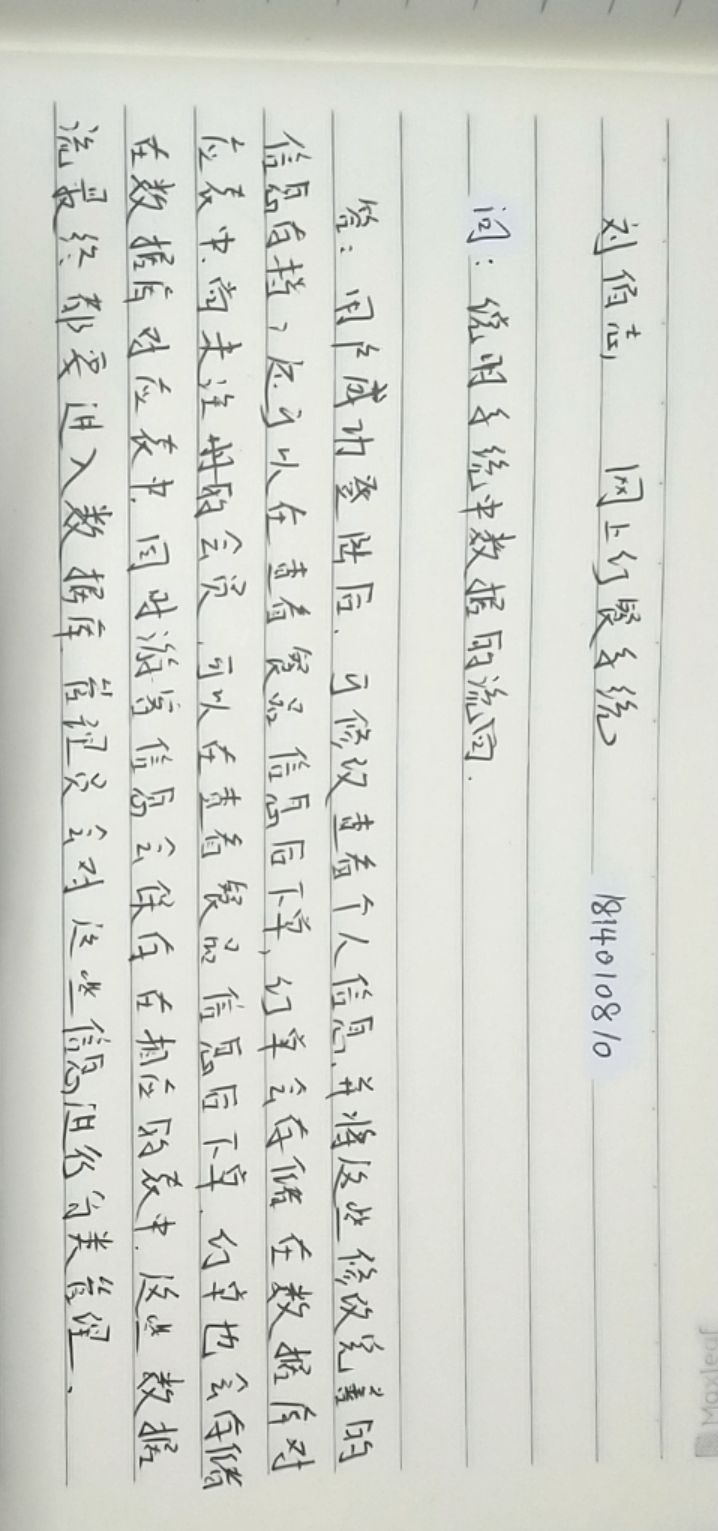 刘佰志 网上订餐系统 1814010810
问：说明系统中数据的流向.
答：用户成功登陆后.可修改查看个人信息,并将这些修改完善的
信息存档,还可以在查看餐品信息后下单,订单会存储在数据库对
应表中.尚未注册的会员,可以在查看餐品信息后下单.订单也会存储
在数据库对应表中.同时游客信息会保存在相应的表中.这些数据
流最终都要进入数据库.管理员会对这些信息进行分类管理、
Maxleaf